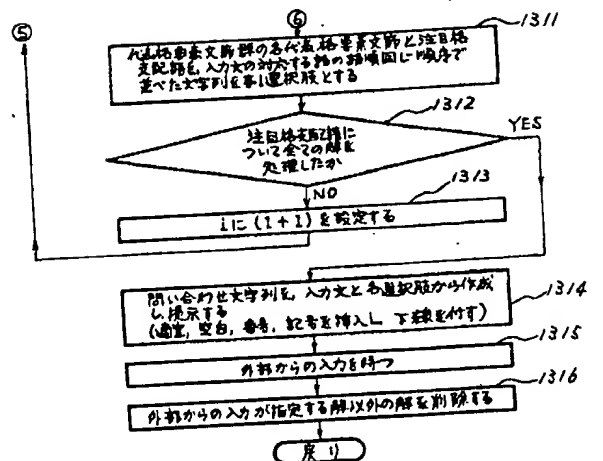 ⑤
⑥
1311
代表格要素文節群の各代表格要素文節と注目格
支配語を、入力文の対応する語の語順と同じ順序で
並べた文字列を第i選択肢とする
1312
注目格支配語に
ついて全ての解を
処理したか
YES
NO
1313
iに(i+1)を設定する
1314
問い合わせ文字列を、入力文と各選択肢から作成
し提示する
(適宜,空白,番号,記号を挿入し、下線を付す)
1315
外部からの入力を待つ
1316
外部からの入力が指定する解以外の解を削除する
戻り